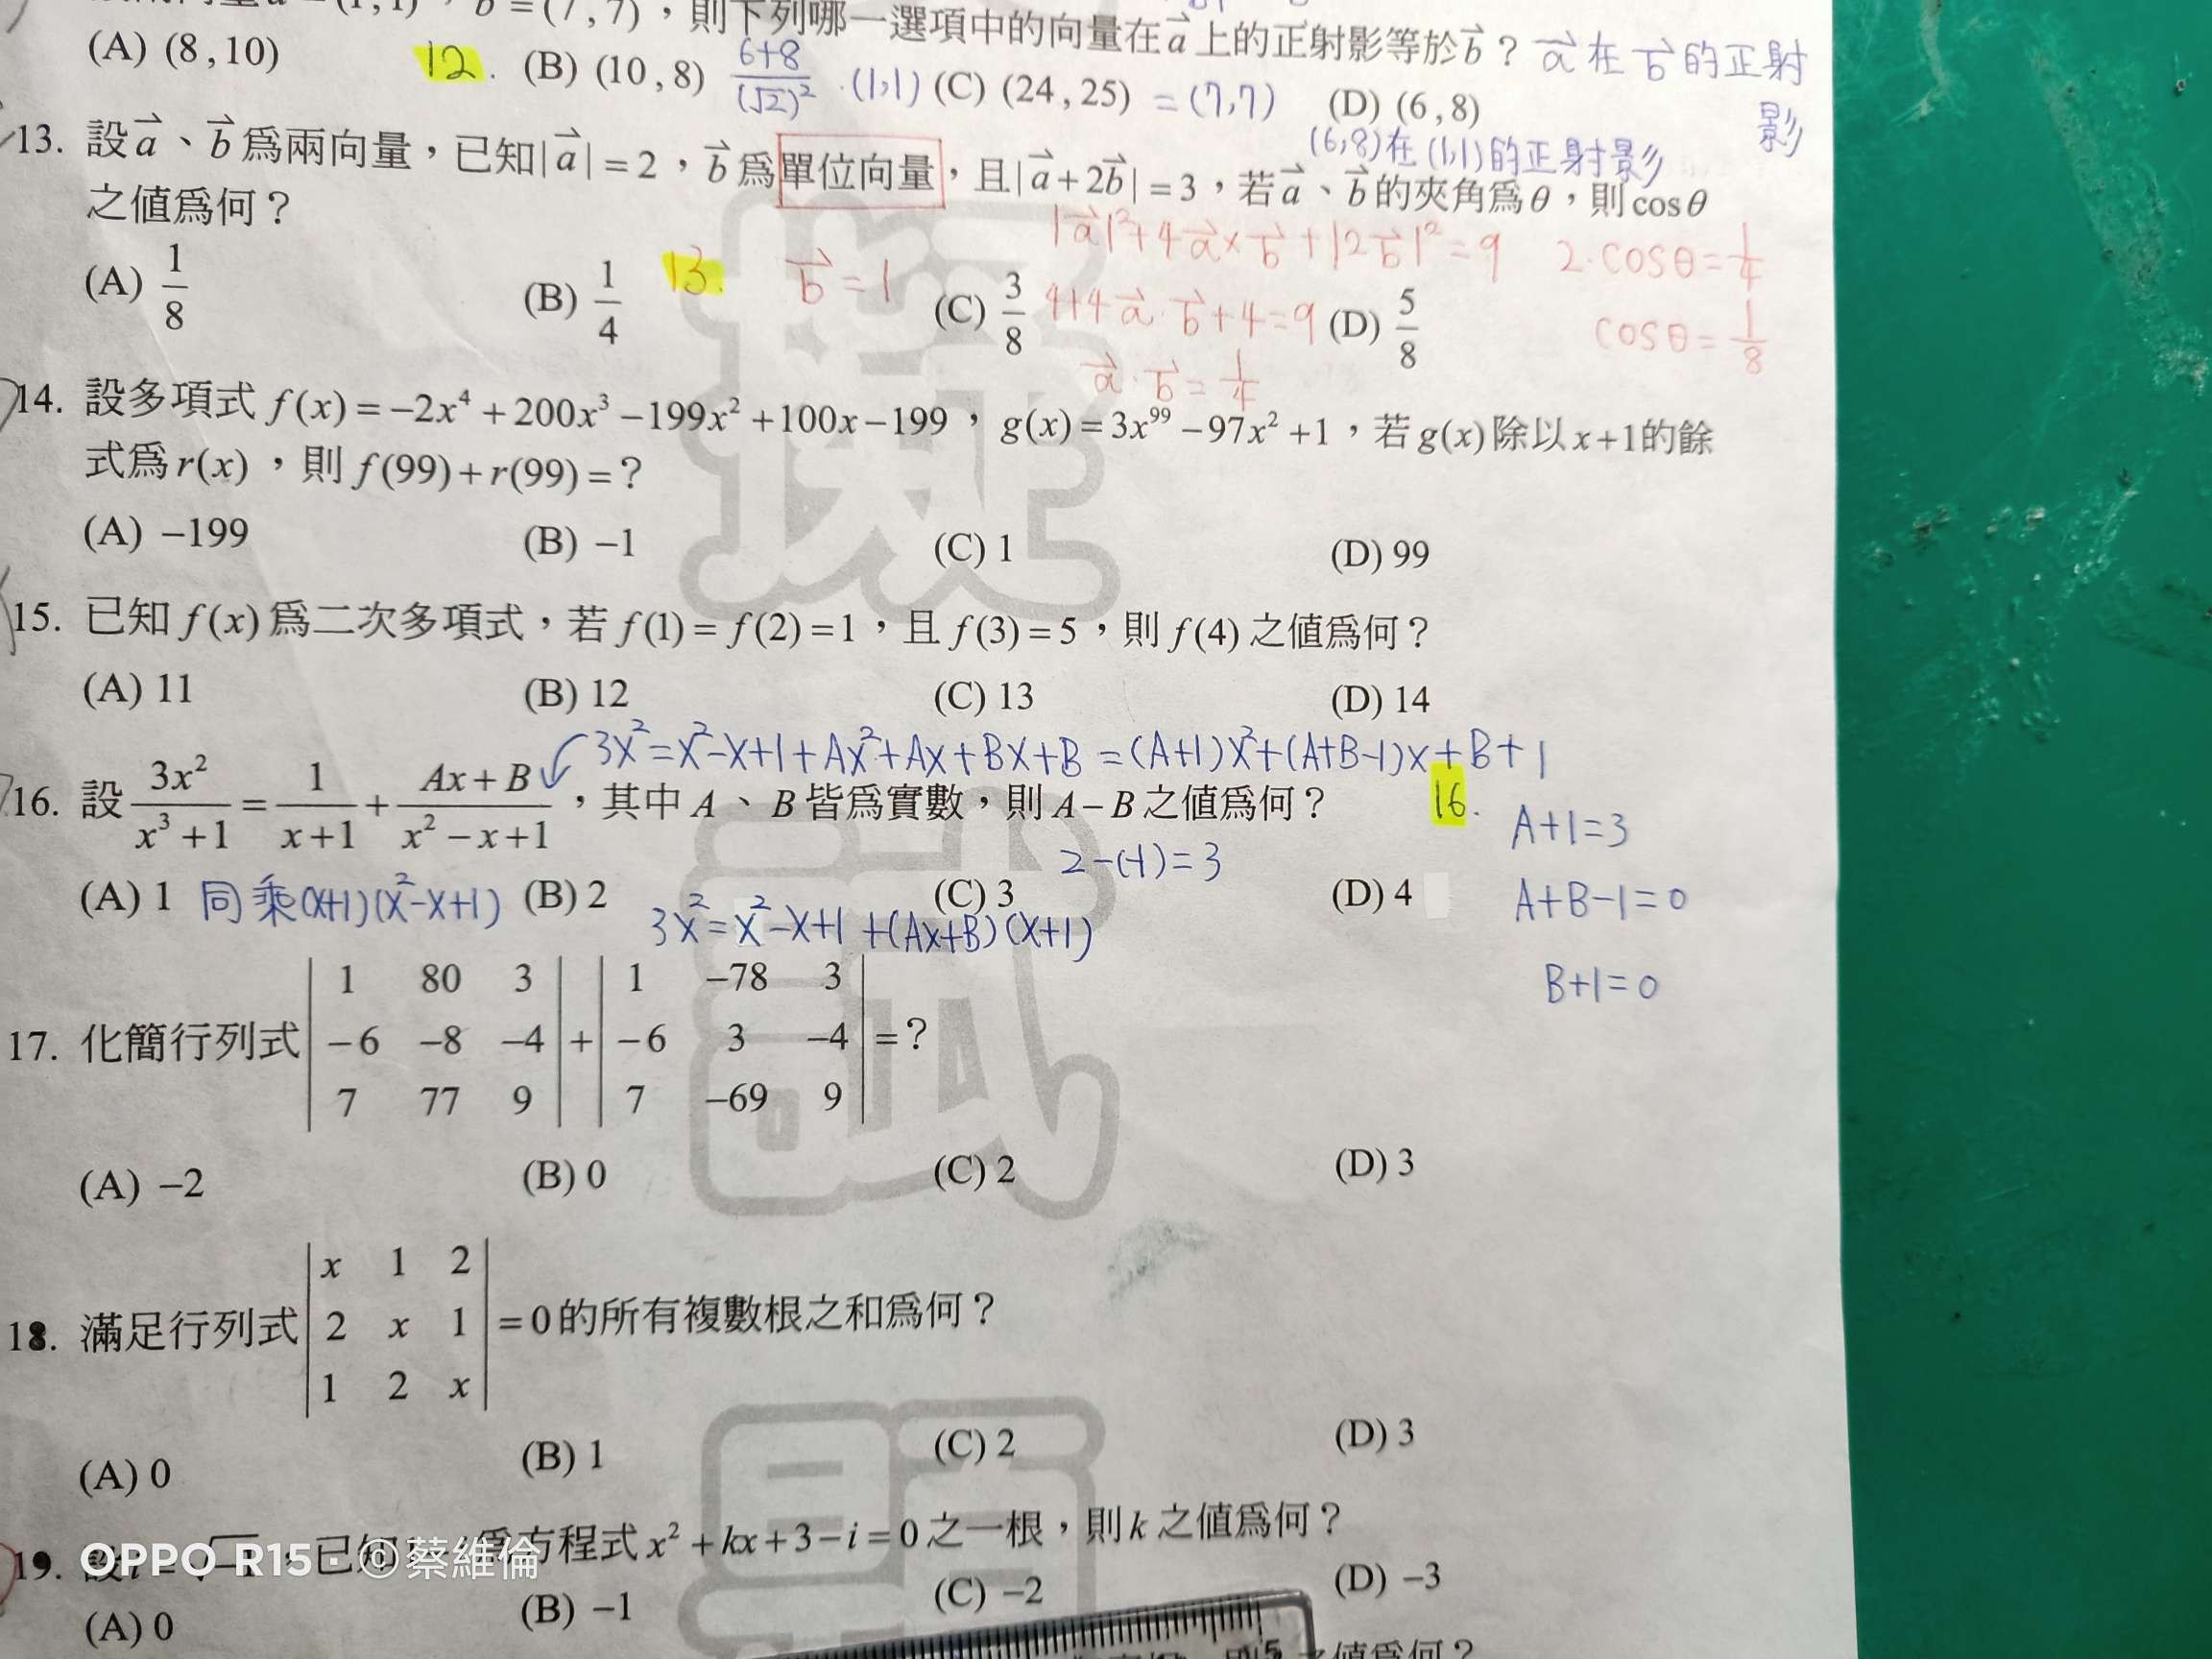 b = (7 , 7) ，則下列哪一選項中的向量在 a 上的正射影等於 b ? a 在 b 的正射影
(A) (8 , 10) 12. (B) (10 , 8) (6+8)/(√2)² · (1,1) (C) (24 , 25) = (7,7) (D) (6 , 8)
(6,8)在(1,1)的正射影
13. 設 a 、 b 爲兩向量，已知 |a| = 2 ， b 爲單位向量，且 |a + 2b| = 3 ，若 a 、 b 的夾角爲 θ ，則 cos θ
之值爲何？
|a|² + 4a × b + |2b|² = 9 2·cosθ = 1/4
(A) 1/8 (B) 1/4 13. b = 1 (C) 3/8 4+4a·b+4=9 (D) 5/8 cosθ = 1/8
a·b = 1/4
14. 設多項式 f(x) = −2x⁴ + 200x³ − 199x² + 100x − 199 ， g(x) = 3x⁹⁹ − 97x² + 1 ，若 g(x) 除以 x + 1 的餘
式爲 r(x) ，則 f(99) + r(99) = ?
(A) −199 (B) −1 (C) 1 (D) 99
15. 已知 f(x) 爲二次多項式，若 f(1) = f(2) = 1 ，且 f(3) = 5 ，則 f(4) 之值爲何？
(A) 11 (B) 12 (C) 13 (D) 14
3x²=x²-x+1+Ax²+Ax+Bx+B =(A+1)x²+(A+B-1)x+B+1
16. 設 3x²/(x³ + 1) = 1/(x + 1) + (Ax + B)/(x² − x + 1) ，其中 A 、 B 皆爲實數，則 A − B 之值爲何？ 16. A+1=3
2-(-1)=3
(A) 1 同乘(x+1)(x²-x+1) (B) 2 (C) 3 (D) 4 A+B-1=0
3x²=x²-x+1 +(Ax+B)(x+1)
B+1=0
17. 化簡行列式 | 1 80 3 | + | 1 −78 3 |
| −6 −8 −4 | + | −6 3 −4 | = ?
| 7 77 9 | | 7 −69 9 |
(A) −2 (B) 0 (C) 2 (D) 3
18. 滿足行列式 | x 1 2 |
| 2 x 1 | = 0 的所有複數根之和爲何？
| 1 2 x |
(A) 0 (B) 1 (C) 2 (D) 3
19. 設 已知 爲方程式 x² + kx + 3 − i = 0 之一根，則 k 之值爲何？
OPPO R15 · ©蔡維倫
(A) 0 (B) −1 (C) −2 (D) −3
之值爲何？